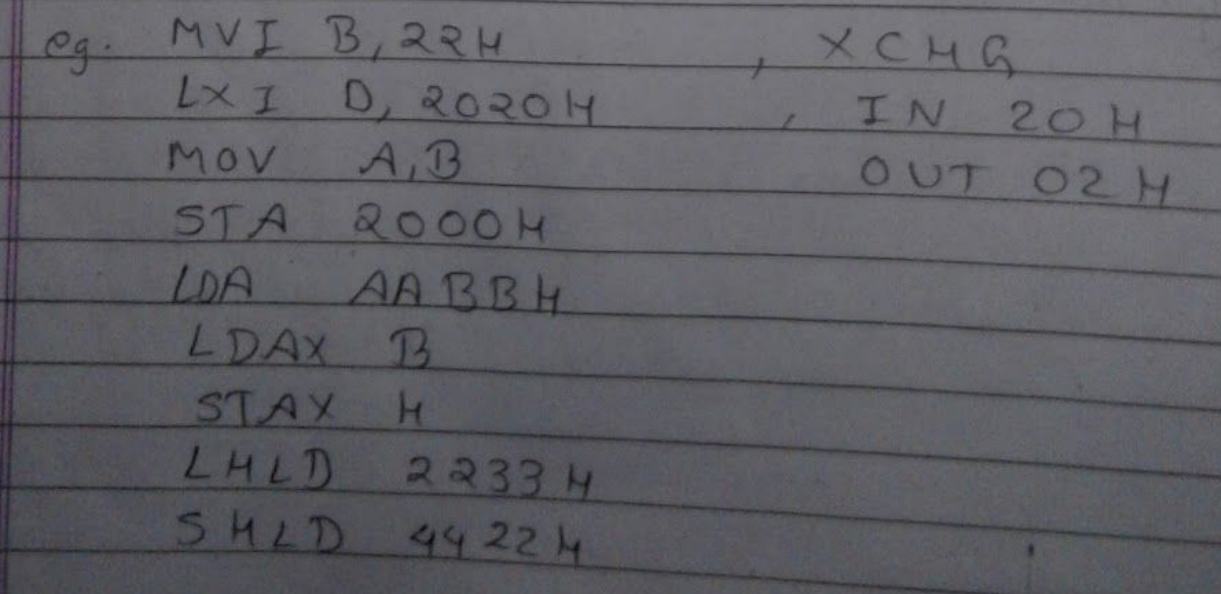 eg. MVI B, 22H , XCHG
LXI D, 2020H , IN 20H
MOV A, B OUT 02H
STA 2000H
LDA AABBH
LDAX B
STAX H
LHLD 2233H
SHLD 4422H